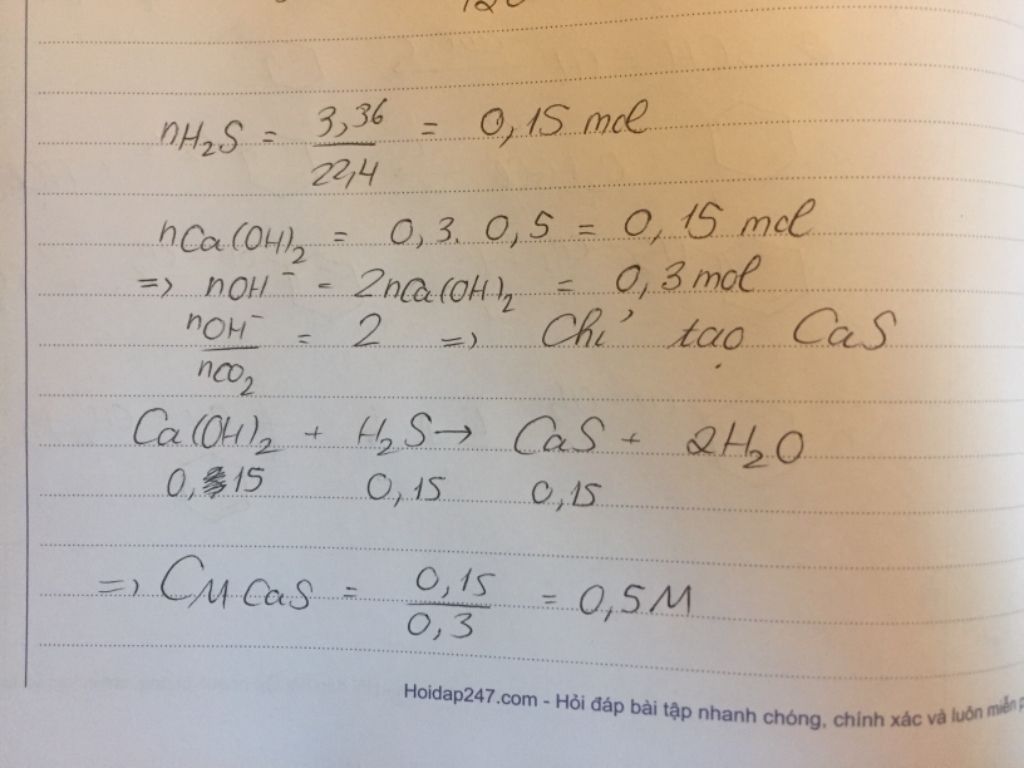 nH₂S = 3,36 / 22,4 = 0,15 mol
nCa(OH)₂ = 0,3. 0,5 = 0,15 mol
=> nOH⁻ = 2nCa(OH)₂ = 0,3 mol
nOH⁻ / nCO₂ = 2 => Chỉ tạo CaS
Ca(OH)₂ + H₂S → CaS + 2H₂O
0,15 0,15 0,15
=> CM CaS = 0,15 / 0,3 = 0,5M
Hoidap247.com - Hỏi đáp bài tập nhanh chóng, chính xác và luôn miễn